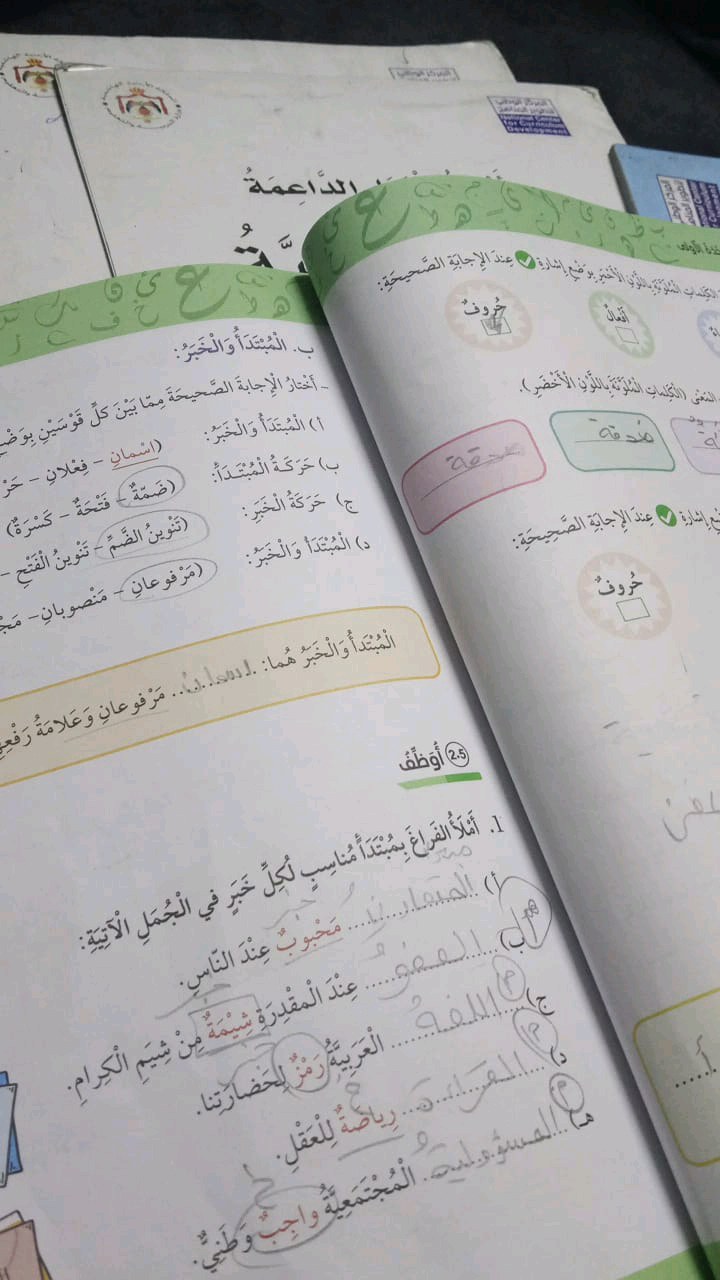 المركز الوطني
لتطوير المناهج
National Center
for Curriculum
Development
الدَّاعِمَةُ
عِنْدَ الإِجابَةِ الصَّحيحَةِ:
الكَلِماتِ المُلَوَّنَةِ بِاللَّوْنِ الأَحْمَرِ بِوَضْعِ إشارَةِ
أَفْعالٌ
حُروفٌ
المَعْنى (الكَلِماتِ المُلَوَّنَةِ بِاللَّوْنِ الأَخْضَرِ).
صدقة
صدقة
إشارَةِ عِنْدَ الإِجابَةِ الصَّحيحَةِ:
حُروفٌ
ب. الْمُبْتَدَأُ وَالْخَبَرُ:
- أَخْتارُ الْإِجابَةَ الصَّحيحَةَ مِمّا بَيْنَ كُلِّ قَوْسَيْنِ بِوَضْعِ
أ) الْمُبْتَدَأُ وَالْخَبَرُ: (اسْمانِ - فِعْلانِ -
ب) حَرَكَةُ الْمُبْتَدَأِ: (ضَمَّةٌ - فَتْحَةٌ - كَسْرَةٌ)
ج) حَرَكَةُ الْخَبَرِ: (تَنْوينُ الضَّمِّ - تَنْوينُ الْفَتْحِ -
د) الْمُبْتَدَأُ وَالْخَبَرُ: (مَرْفوعانِ - مَنْصوبانِ -
الْمُبْتَدَأُ وَالْخَبَرُ هُما: اسمان مَرْفوعانِ وَعَلامَةُ
2.5 أُوَظِّفُ
1. أَمْلَأُ الفَراغَ بِمُبْتَدَأٍ مُناسِبٍ لِكُلِّ خَبَرٍ في الْجُمَلِ الْآتِيَةِ:
أ) ........ مَحْبوبٌ عِنْدَ النّاسِ.
ب) العفوُ عِنْدَ الْمَقْدِرَةِ شِيْمَةٌ مِنْ شِيَمِ الْكِرامِ.
ج) اللغةُ الْعَرَبِيَّةُ رَمْزٌ لِحَضارَتِنا.
د) القراءة رِياضَةٌ لِلْعَقْلِ.
هـ) المسؤوليةُ الْمُجْتَمَعِيَّةُ واجِبٌ وَطَنِيٌّ.